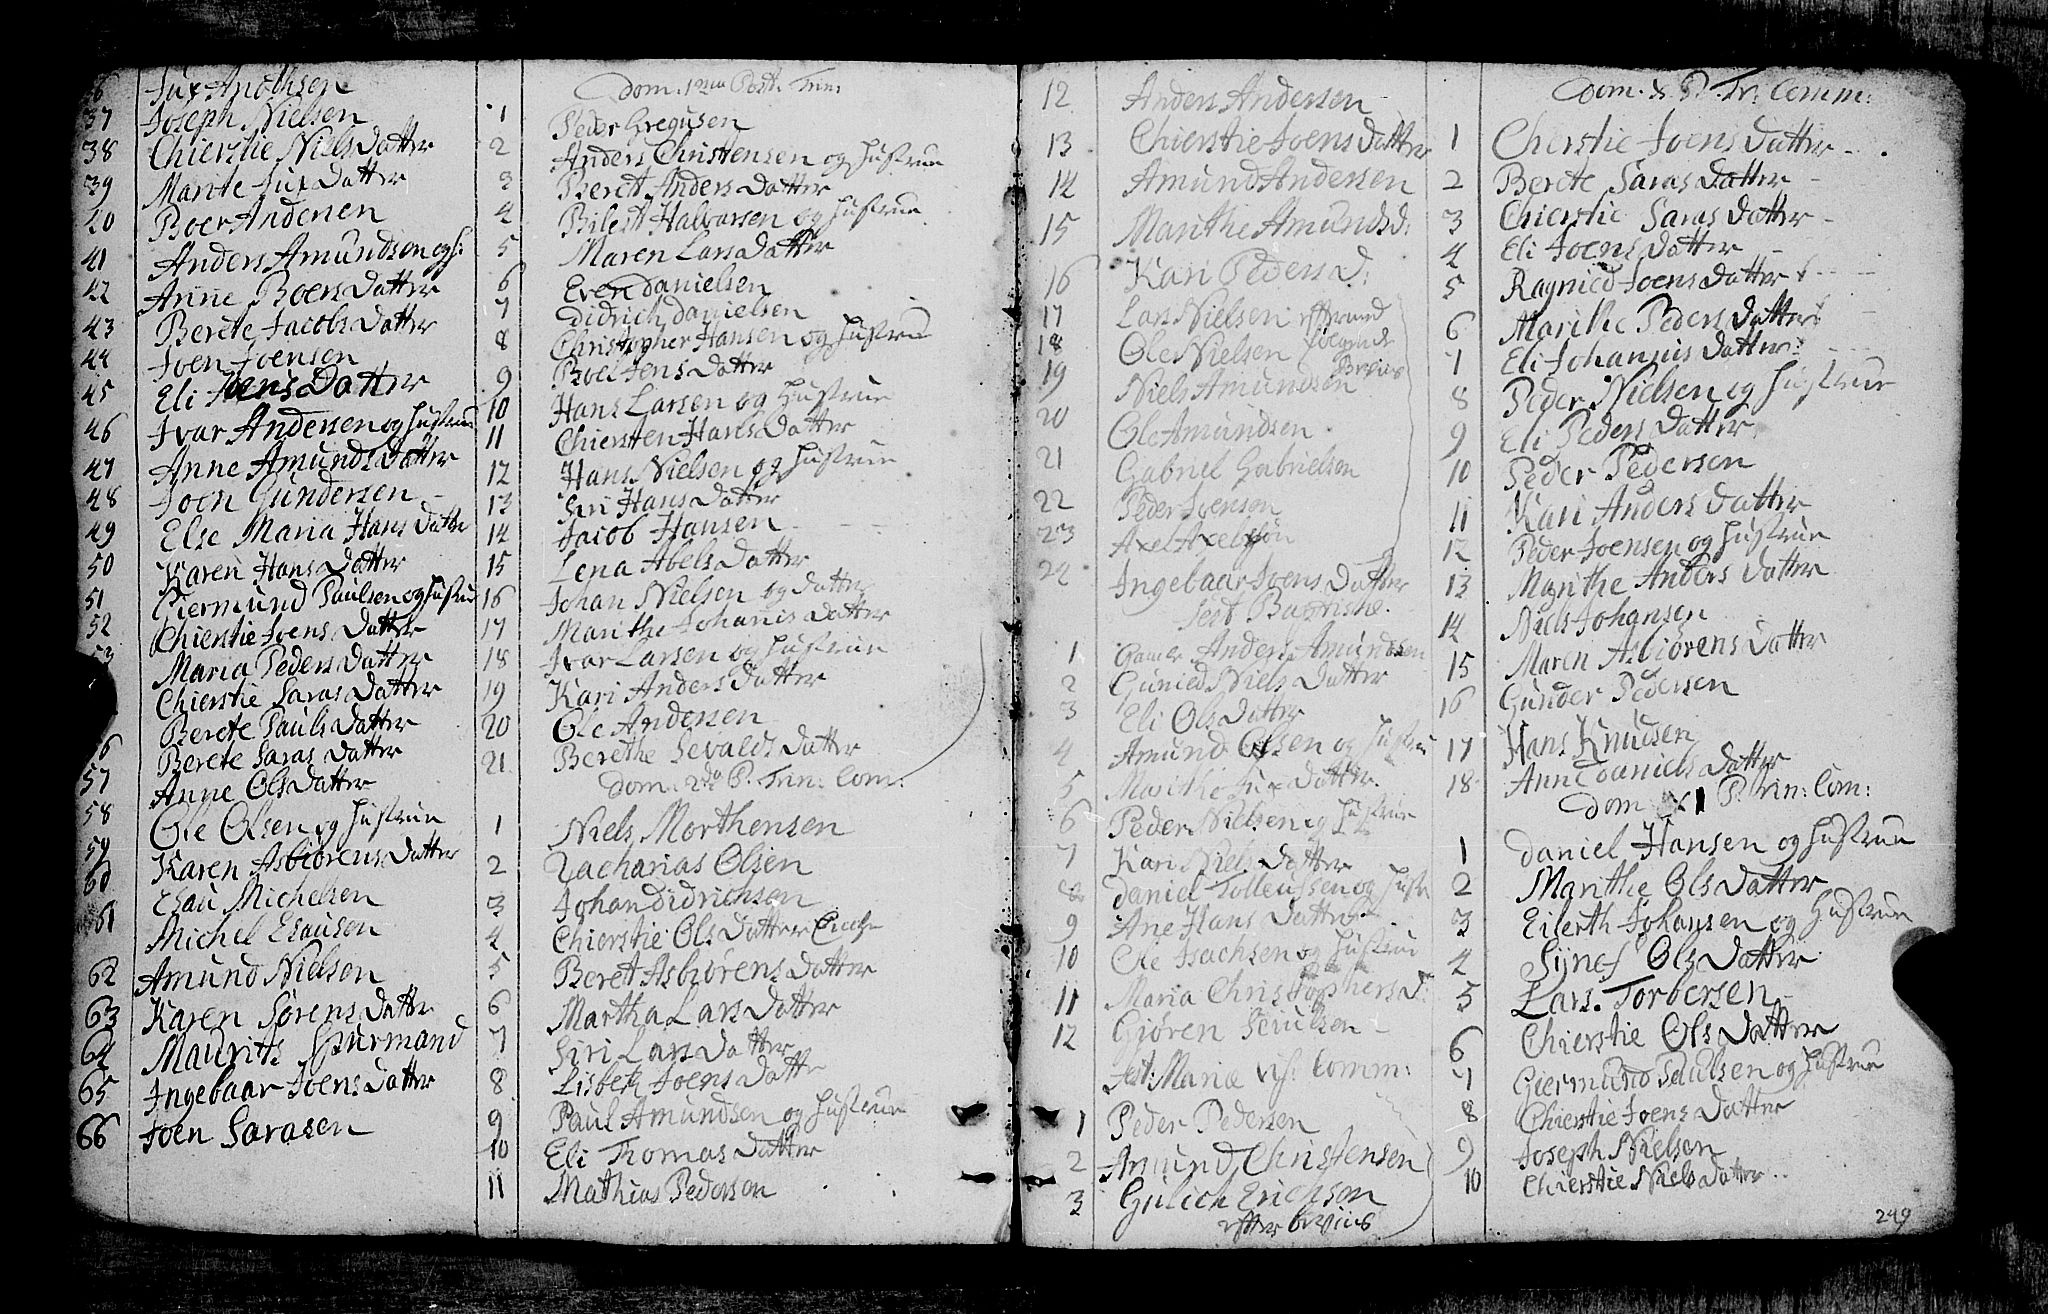 36 Jux Anochsen
37 Joseph Nielsen
38 Chierstie NielsDatter
39 Marite JuxDatter
40 Boer Andersen
41 Anders Amundsen og h:
42 Anne BoersDatter
43 Berete JacobsDatter
44 Joen Joensen
45 Eli JoensDatter
46 Ivar Andersen og Hustrue
47 Anne AmundsDatter
48 Joen Gundersen
49 Else Maria HansDatte
50 Karen HansDatter
51 Giermund Paulsen og Hustru
52 Chierstie JoensDatter
53 Maria PedersDatter
Chierstie SarasDatter
Berete PaulsDatter
56 Berete Saras Datter
57 Anne OlsDatter
58 Ole Olsen og Hustrue
59 Karen AsbiørensDatter
60 Esau Michelsen
61 Michel Esausen
62 Amund Nielsen
63 Karen SørensDatte
64 Maurits Spurmand
65 Ingebaar JoensDatter
66 Joen Sarasen
Dom. 1ma Post. Trin:
1 Peder Gregusen
2 Anders Christensen og Hustrue
3 Beret AndersDatter
4 Bilest Halvorsen og Hustrue
5 Maren LarsDatter
6 Even Danielsen
7 Didrich Danielsen
8 Christopher Hansen og Hustrue
9 Boel JensDatter
10 Hans Larsen og Hustrue
11 Chiersten HansDatter
12 Hans Nielsen og Hustrue
13 Siri HansDatter
14 Jacob Hansen
15 Lena AbelsDatter
16 Johan Nielsen og Datter
17 Marithe JohanisDatter
18 Ivar Larsen og Hustrue
19 Kari AndersDatter
20 Ole Andersen
21 Berethe SevaldsDatter
Dom. 2da P. Trin: Com:
1 Niels Morthensen
2 Zacharias Olsen
3 Johan Didrichsen
4 Chierstie OlsDatter
5 Beret AsbiørensDatter
6 Martha LarsDatter
7 Siri LarsDatter
8 Lisbeth JoensDatte
9 Paul Amundsen og Hustrue
10 Eli ThomasDatter
11 Mathias Pedersen
12 Anders Andersen
13 Chierstie JoensDatter
14 Amund Andersen
15 Marithe Amundsd:
16 Kari Pedersd:
17 Lars Nielsen efter
18 Ole Nielsen følgende
19 Niels Amundsen Beviis
20 Ole Amundsen
21 Gabriel Gabrielsen
22 Peder Ivensen
23 Axel Axelssøn
24 Ingebaar JoensDatter
Fest Baptistæ.
1 Gamer Anders Amundsen
2 Gunied NielsDatter
3 Eli OlsDatter
4 Amund Olsen og Hustru
5 Marithe JuxDatter
6 Peder Nielsen og Hustrue
7 Kari NielsDatter
8 Daniel Tollefssen og Hust
9 Ane HansDatter
10 Ole Isachsen og Hustrue
11 Maria Christophersd:
12 Giøren Poulsen
Fest: Mariæ vis: Comm:
1 Peder Pedersen
2 Amund Christensen
3 Gulich Erichsen
efter beviis
Dom. P. Tr: Comm:
1 Chierstie JoensDatter
2 Berete SarasDatter
3 Chierstie SarasDatter
4 Eli JoensDatter
5 Ragnied JoensDatter
6 Marithe PedersDatter
7 Eli JohannisDatter
8 Peder Nielsen og Hustrue
9 Eli PedersDatter
10 Peder Pedersen
11 Kari AndersDatter
12 Peder Joensen og Hustrue
13 Marithe AndersDatter
14 Niels Johansen
15 Maren AsbiørensDatter
16 Gunder Pedersen
17 Hans Knudsen
18 Anne DanielsDatter
Dom P. Trin: Com:
1 Daniel Hansen og Hustrue
2 Marithe OlsDatter
3 Eilerth Johansen og Hustrue
4 Signes OlsDatter
5 Lars Torbersen
6 Chierstie OlsDatter
7 Giermund Paulsen og Hustrue
8 Chierstie JoensDatter
9 Joseph Nielsen
10 Chierstie NielsDatter
249